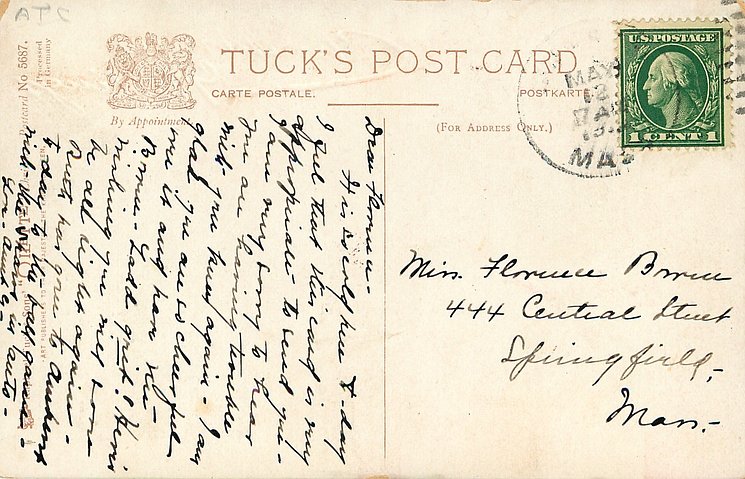 ATC
TUCK'S POST CARD
CARTE POSTALE.
POSTKARTE
By Appointment
(FOR ADDRESS ONLY.)
Postcard No 5687.
Processed in Germany
U.S. POSTAGE
1 CENT 1
MAY
12
MAS
Dear Florence -
It is so cold here to-day
I feel that this card is very
appropriate to send you -
I am very sorry to hear
you are having trouble
with your knee again - I am
glad you are so cheerful
over it and have rec-
Brown - Ladd grit! Here's
wishing you may soon
be all right again -
Ruth has gone to Amherst
to-day to the ball game -
with the in auto -
Miss Florence Brown
444 Central Street
Springfield,
Mass.-